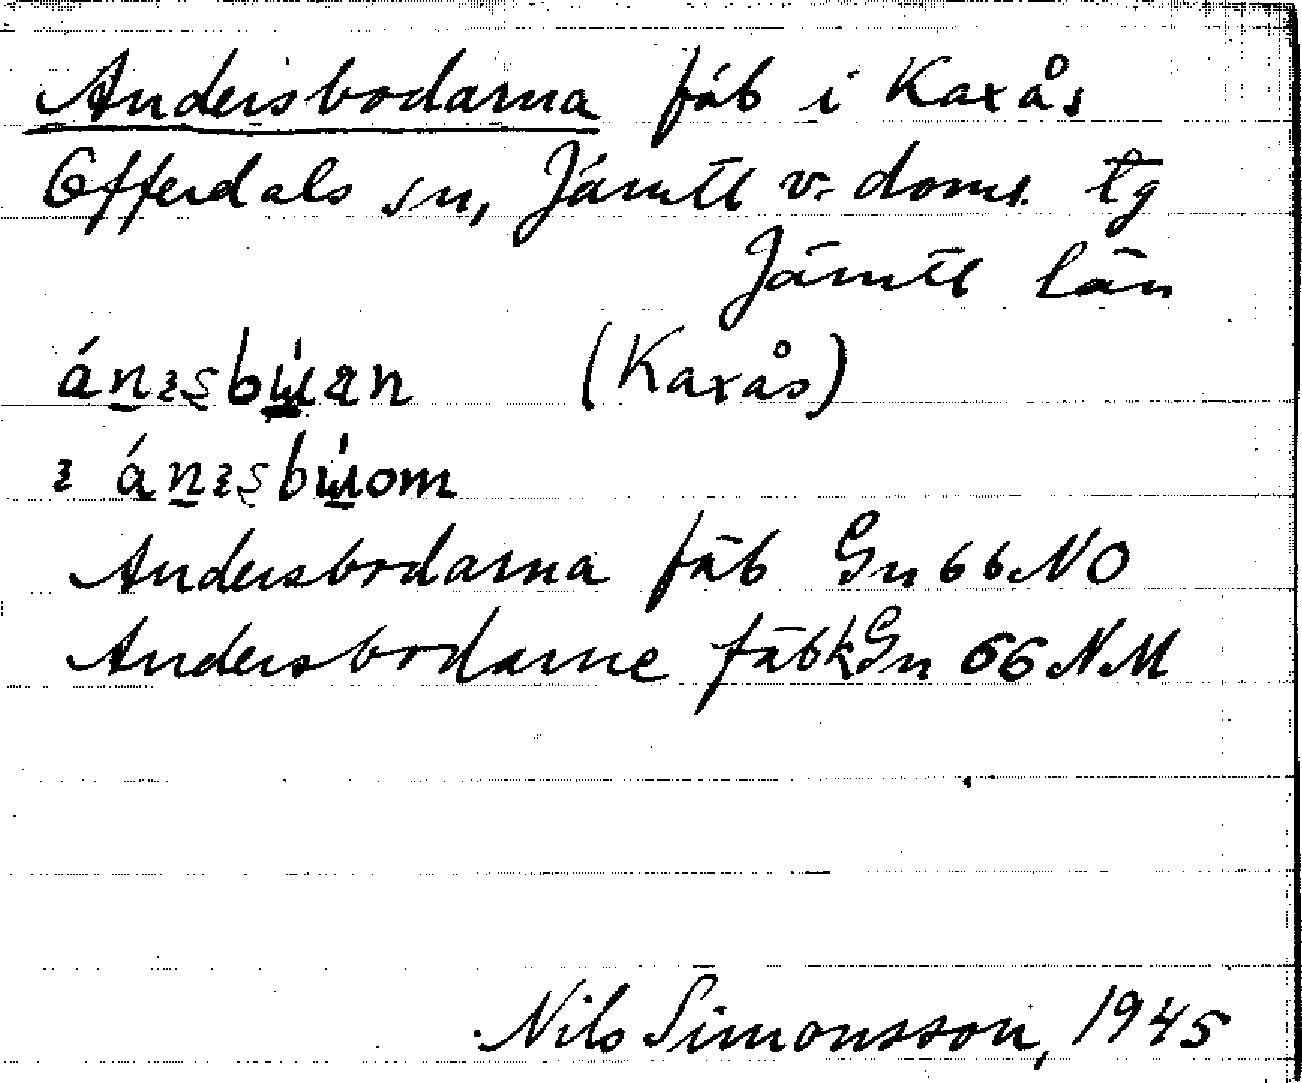 Andersbodarna fäb i Kaxås
Offerdals sn, Jämtl v. doms. tg
Jämtl län
(Kaxås)
Andersbodarna fäb Gn 66 NO
Andersbodarne fäbk Gn 66 NM
Nils Simonsson, 1945